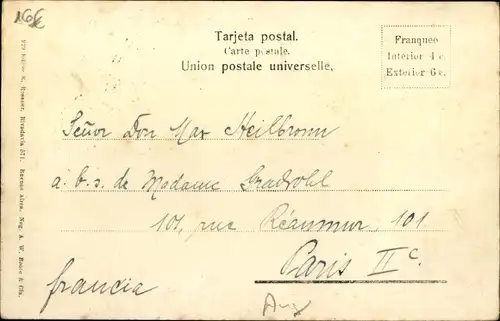 Tarjeta postal.
Carte postale.
Union postale universelle.
Franqueo
Interior 4 c.
Exterior 6 c.
Señor Don Max Heilbronn
a. b. s. de Madame Gradwohl
101, rue Réaumur, 101
Paris IIe.
francia
Editor R. Rosauer, Rivadavia 571. Buenos Aires. Neg. A. W. Boote & Cía.